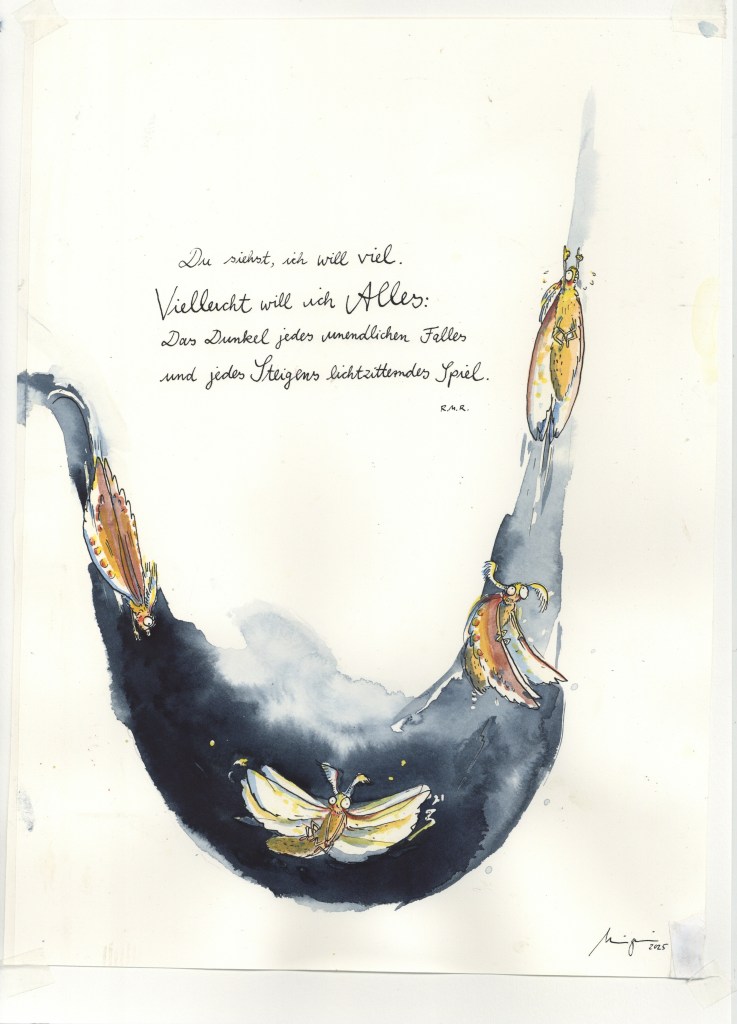 Du siehst, ich will viel.
Vielleicht will ich Alles:
Das Dunkel jedes unendlichen Falles
und jedes Steigens lichtzitterndes Spiel.
R.M.R.
2025